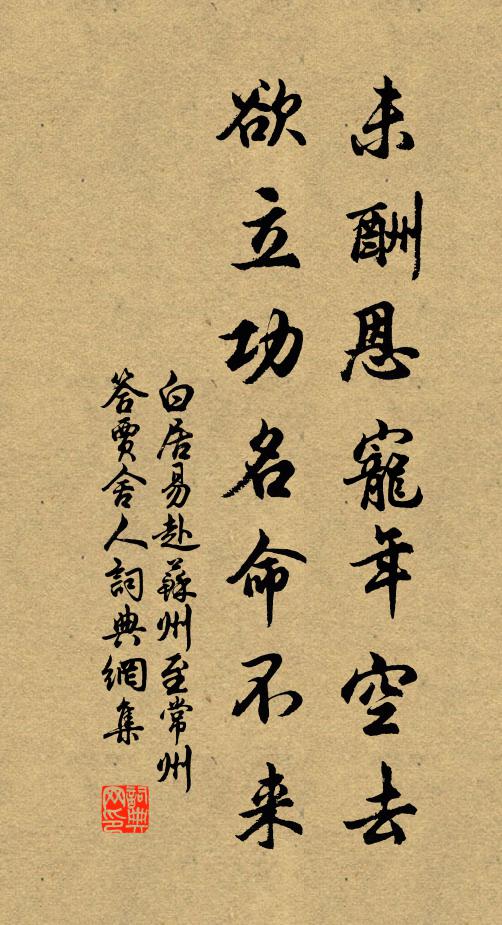 未酬恩寵年空去
欲立功名命不来
白居易赴蘇州至常州
答賈舍人詞典網集
詞典網印